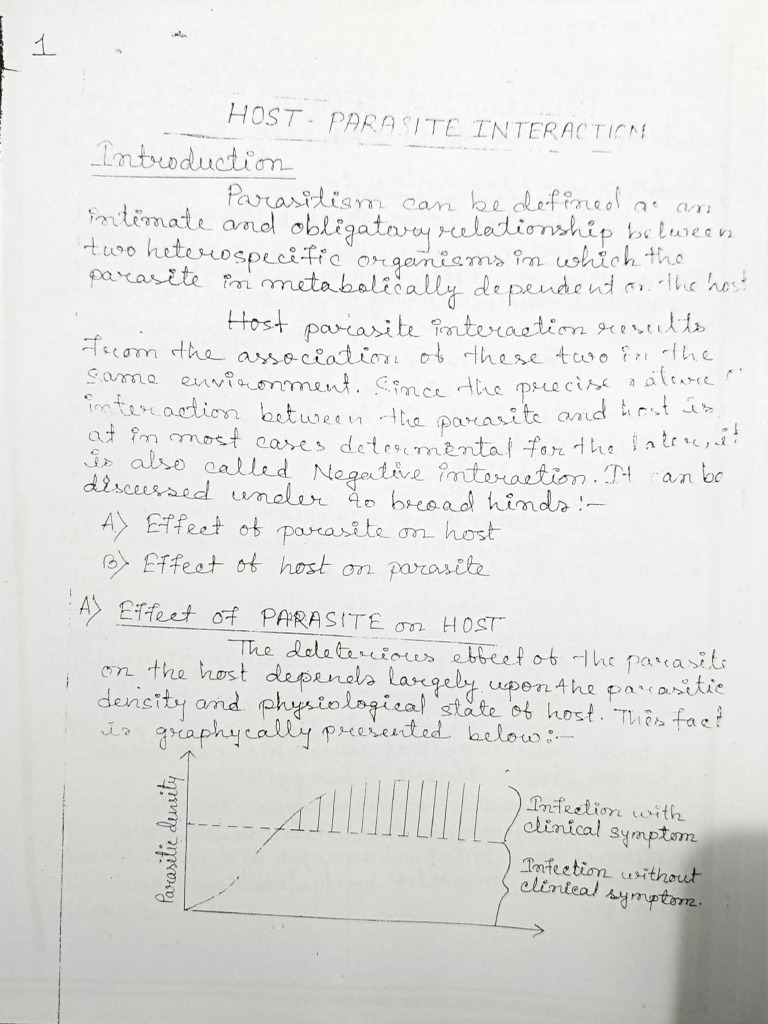 1
HOST - PARASITE INTERACTION
Introduction
Parasitism can be defined as an
intimate and obligatory relationship between
two heterospecific organisms in which the
parasite in metabolically dependent on the host
Host parasite interaction results
from the association of these two in the
same environment. Since the precise nature of
interaction between the parasite and host is
at in most cases determental for the later, it
is also called Negative interaction. It can be
discussed under to broad hinds :-
A) Effect of parasite on host
B) Effect of host on parasite
A) Effect of PARASITE on HOST
The deleterious effect of the parasite
on the host depends largely upon the parasitic
density and physiological state of host. This fact
is graphycally presented below :-
Parasitic density
Infection with
clinical symptom
Infection without
clinical symptom.